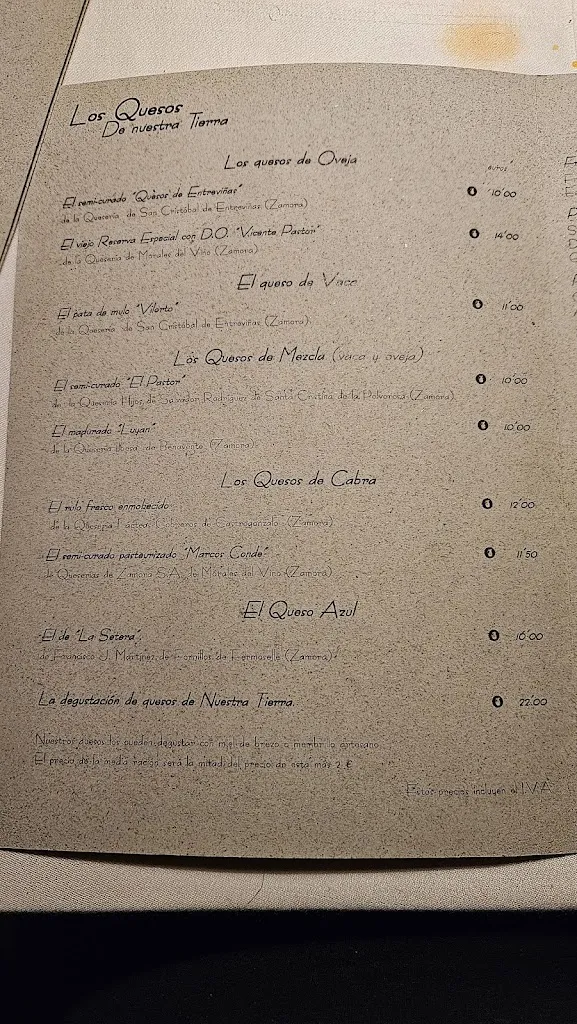 Los Quesos
De nuestra Tierra
Los quesos de Oveja
euros
El semi-curado "Quesos de Entreviñas" 10'00
de la Quesería de San Cristóbal de Entreviñas (Zamora)
El viejo Reserva Especial con D.O. "Vicente Pastor" 14'00
de la Quesería de Morales del Vino (Zamora)
El queso de Vaca
El pata de mulo "Vilorto" 11'00
de la Quesería de San Cristóbal de Entreviñas (Zamora)
Los Quesos de Mezcla (vaca y oveja)
El semi-curado "El Pastor" 10'00
de la Quesería Hijos de Salvador Rodríguez de Santa Cristina de la Polvorosa (Zamora)
El madurado "Luyan" 10'00
de la Quesería de Benavente (Zamora)
Los Quesos de Cabra
El rulo fresco enmohecido 12'00
de la Quesería de Castrogonzalo (Zamora)
El semi-curado pasteurizado "Marcos Conde" 11'50
de Queserías de Zamora S.A. de Morales del Vino (Zamora)
El Queso Azul
El de "La Setera" 16'00
de Francisco J. Martínez de Fornillos de Fermoselle (Zamora)
La degustación de quesos de Nuestra Tierra. 22'00
Nuestros quesos los pueden degustar con miel de brezo o membrillo artesano
El precio de la media ración será la mitad del precio de esta más 2 €
Estos precios incluyen el I.V.A